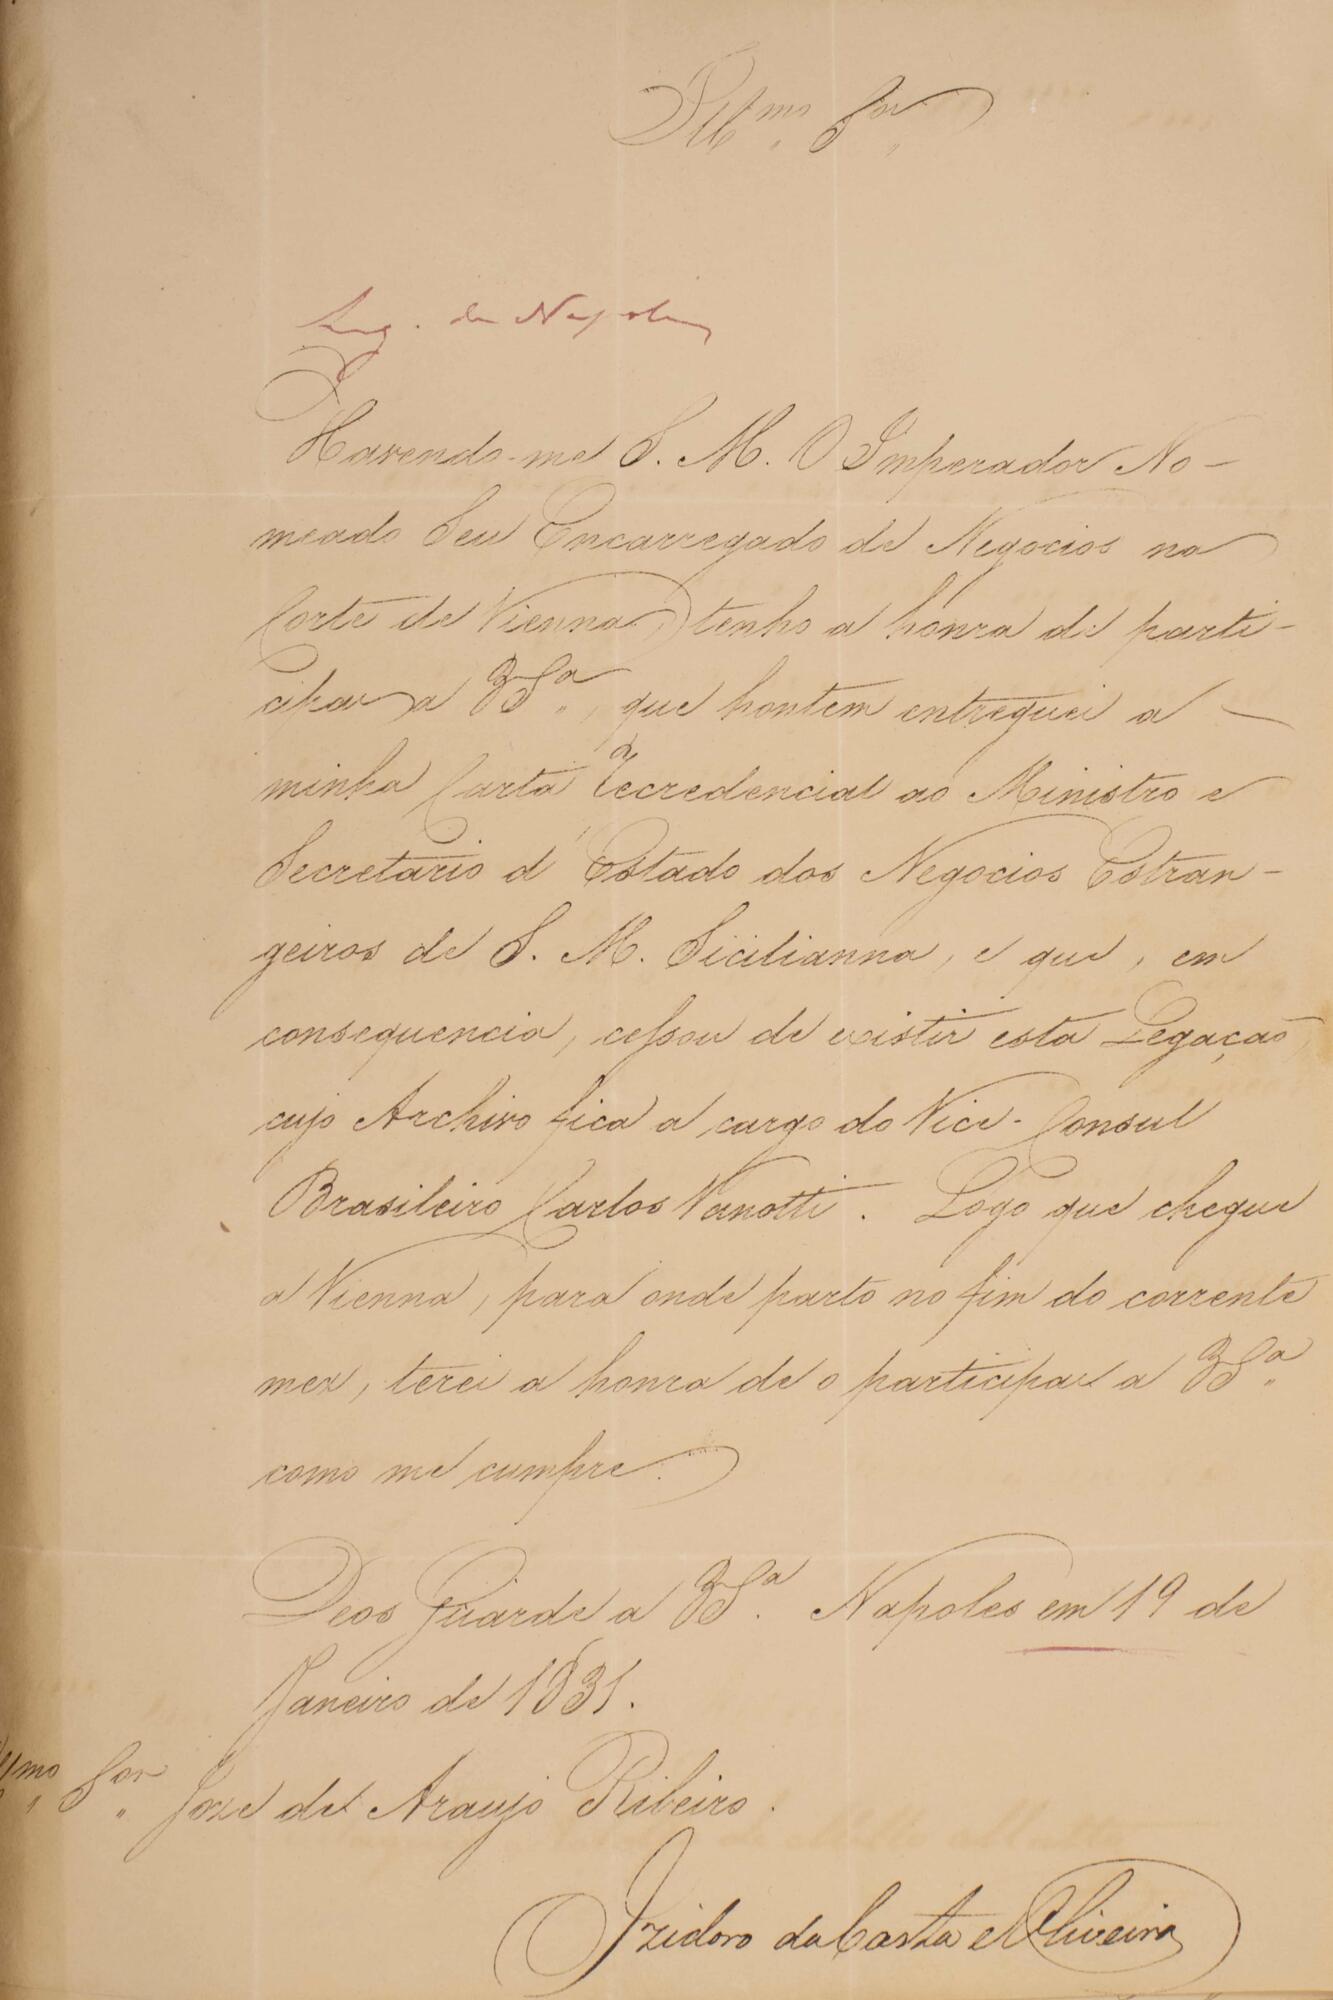 Ill.mo Snr.
Leg. de Napoles
Havendo-me S. M. O Imperador No-
meado Seu Encarregado de Negocios na
Corte de Vienna, tenho a honra de parti-
cipar a VSa., que hontem entreguei a
minha Carta Recredencial ao Ministro e
Secretario d'Estado dos Negocios Estran-
geiros de S. M. Sicilianna, e que, em
consequencia, cessou de existir esta Legação,
cujo Archivo fica a cargo do Vice-Consul
Brasileiro Carlos Vanotti. Logo que chegue
a Vienna, para onde parto no fim do corrente
mez, terei a honra de o participar a VSa.
como me cumpre.
Deos Guarde a VSa. Napoles em 19 de
Janeiro de 1831.
Snr. Joze de Araujo Ribeiro.
Izidoro da Costa e Oliveira